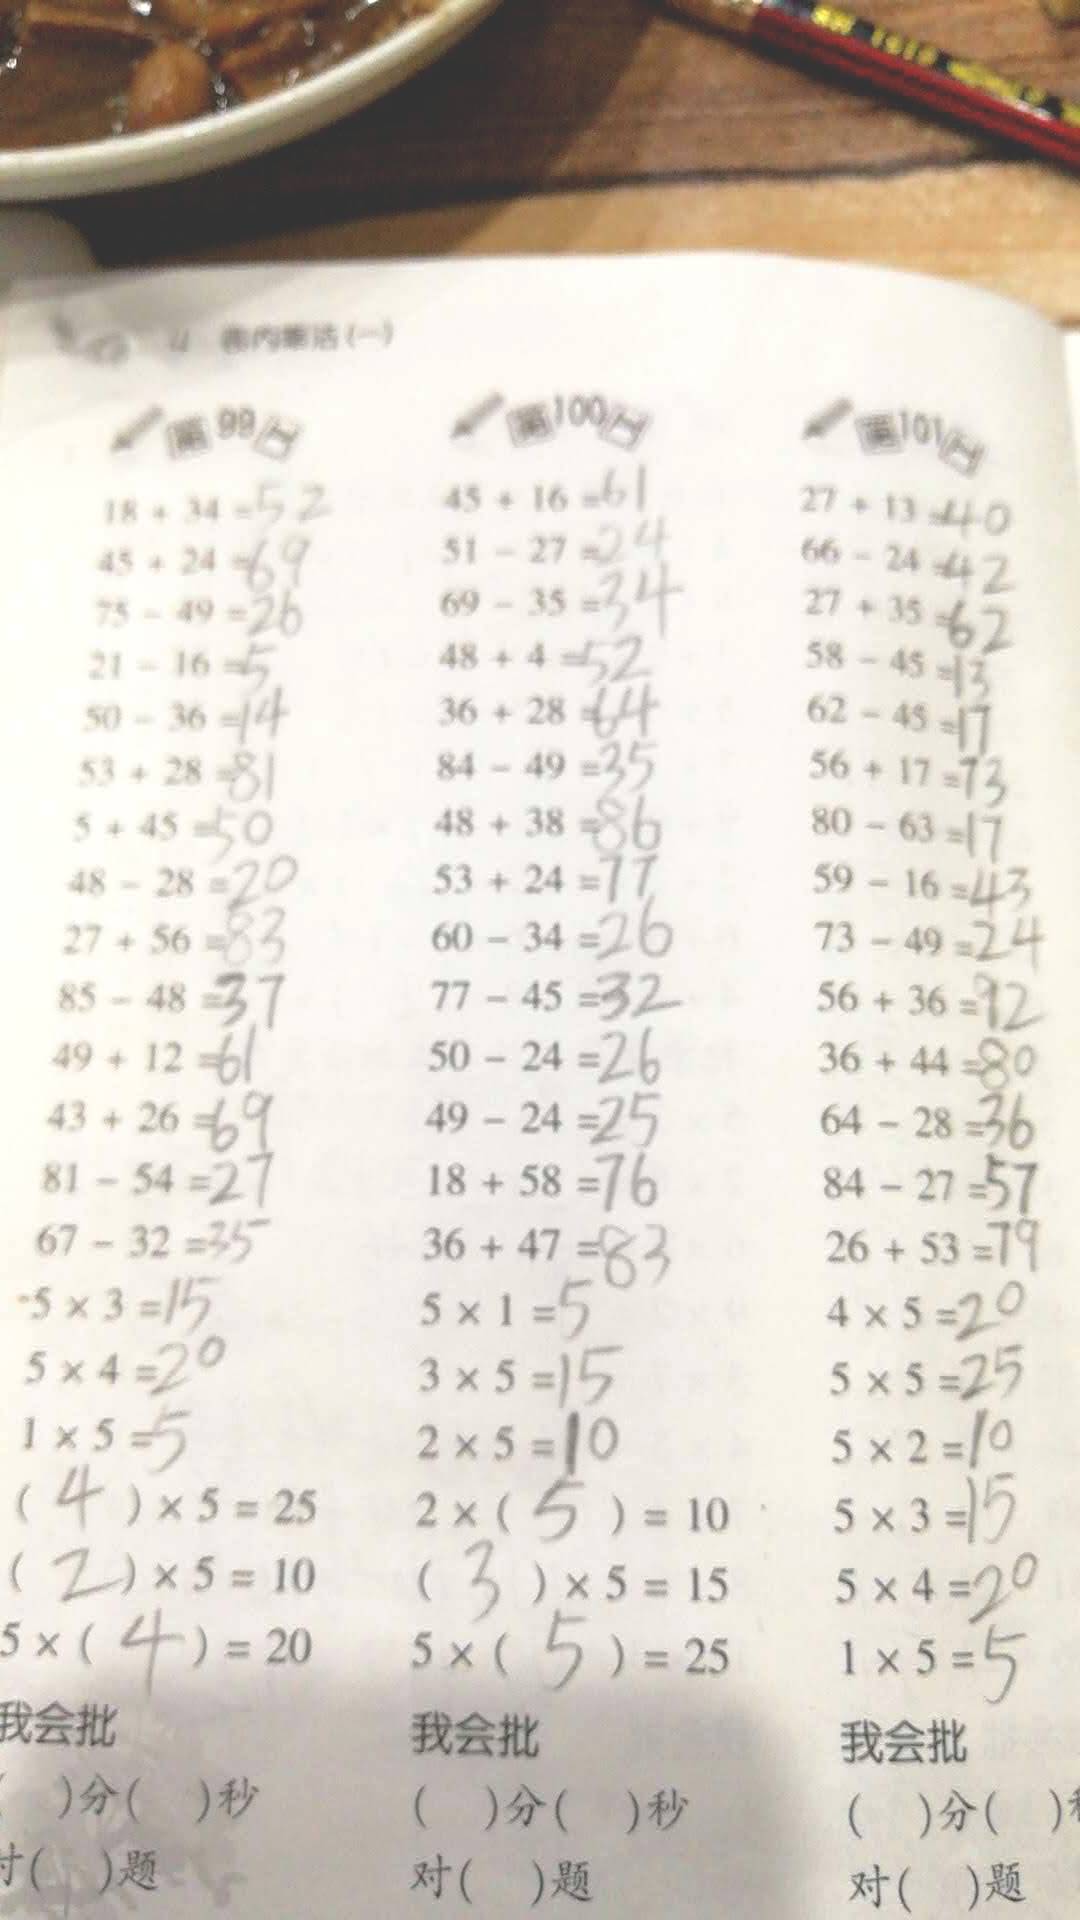 表内乘法(一)
第99天
18 + 34 =52
45 + 24 =69
75 - 49 =26
21 - 16 =5
50 - 36 =14
53 + 28 =81
5 + 45 =50
48 - 28 =20
27 + 56 =83
85 - 48 =37
49 + 12 =61
43 + 26 =69
81 - 54 =27
67 - 32 =35
5 × 3 =15
5 × 4 =20
1 × 5 =5
( 4 ) × 5 = 25
( 2 ) × 5 = 10
5 × ( 4 ) = 20
我会批
( )分( )秒
对( )题
第100天
45 + 16 =61
51 - 27 =24
69 - 35 =34
48 + 4 =52
36 + 28 =64
84 - 49 =35
48 + 38 =86
53 + 24 =77
60 - 34 =26
77 - 45 =32
50 - 24 =26
49 - 24 =25
18 + 58 =76
36 + 47 =83
5 × 1 =5
3 × 5 =15
2 × 5 =10
2 × ( 5 ) = 10
( 3 ) × 5 = 15
5 × ( 5 ) = 25
我会批
( )分( )秒
对( )题
第101天
27 + 13 =40
66 - 24 =42
27 + 35 =62
58 - 45 =13
62 - 45 =17
56 + 17 =73
80 - 63 =17
59 - 16 =43
73 - 49 =24
56 + 36 =92
36 + 44 =80
64 - 28 =36
84 - 27 =57
26 + 53 =79
4 × 5 =20
5 × 5 =25
5 × 2 =10
5 × 3 =15
5 × 4 =20
1 × 5 =5
我会批
( )分( )秒
对( )题